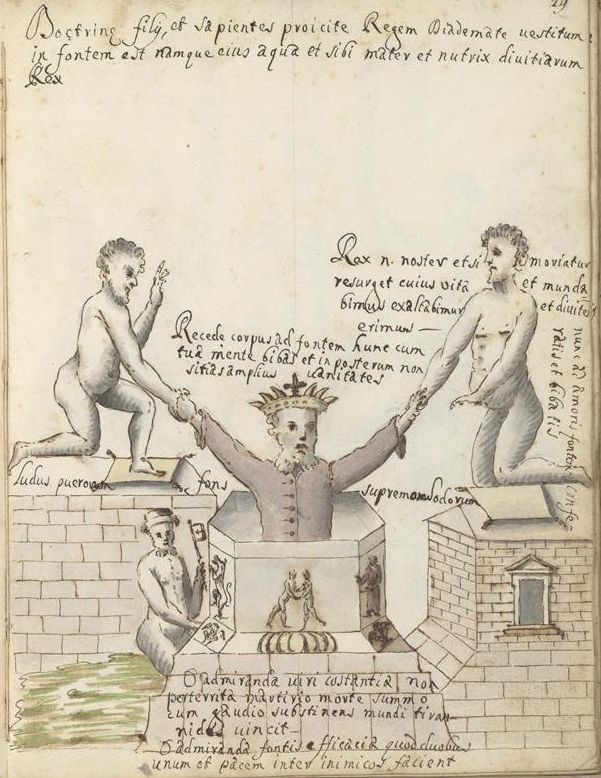 29
Doctrine filij, et sapientes proicite Regem Diademate vestitum
in fontem est namque eius aqua et sibi mater et nutrix divitiarum
Rex
Rex n. noster etsi moriatur
resurget cuius vita et munda
bimus exaltabimur et divites
erimus —
Recede corpus ad fontem hunc cum
tua mente bibas et in posterum non
sitias amplius vanitates
nunc ad amoris fontem
ratis et bibatis
Ludus puerorum fons supremorum
O admiranda viri costantia non
perterrita martirio morte summo
cum gaudio substinens mundi tiran
nidem vincit —
O admiranda fontis efficacia quod duobus
unum et pacem inter inimicos facient